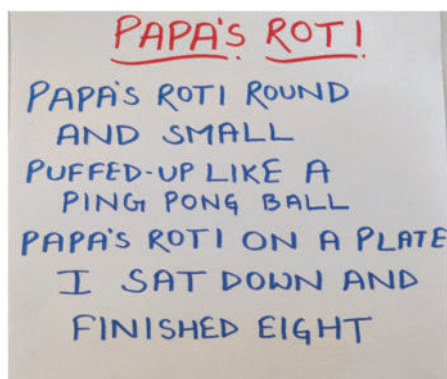 PAPA'S ROTI
PAPA'S ROTI ROUND
AND SMALL
PUFFED-UP LIKE A
PING PONG BALL
PAPA'S ROTI ON A PLATE
I SAT DOWN AND
FINISHED EIGHT